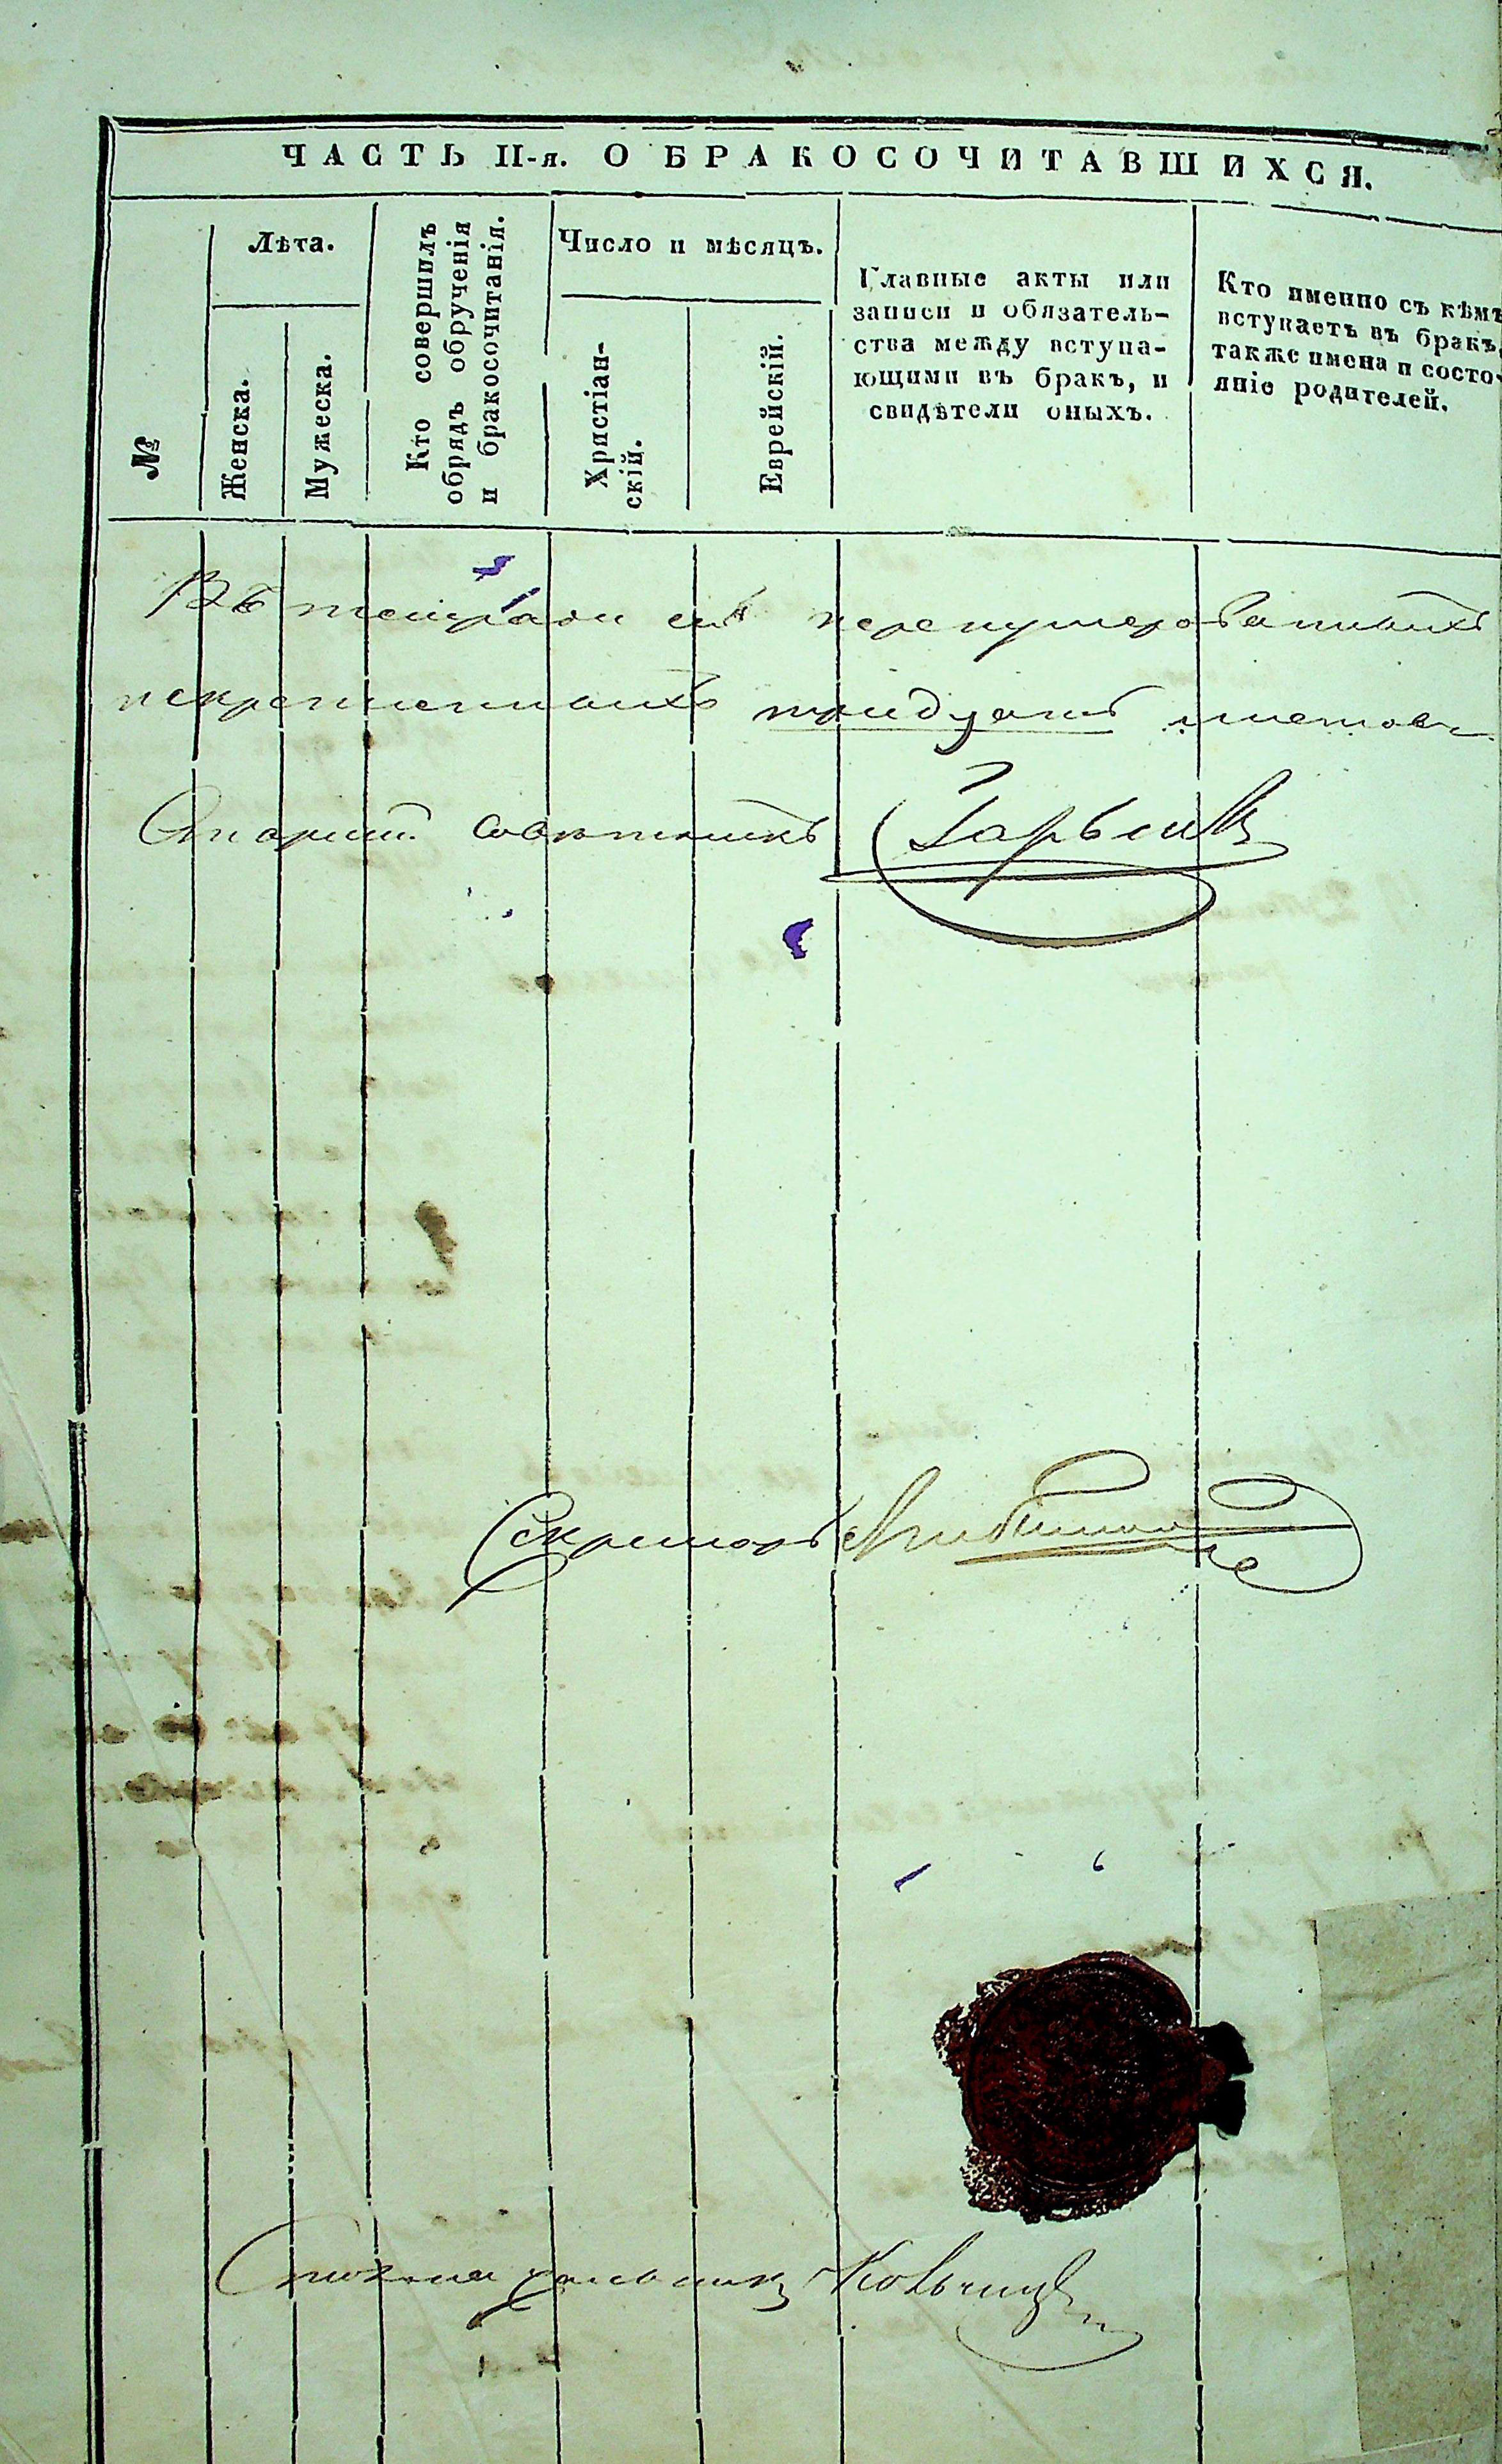 ЧАСТЬ II-я. О БРАКОСОЧИТАВШИХСЯ.
№
Лѣта.
Женска.
Мужеска.
Кто совершилъ
обрядъ обрученія
и бракосочитанія.
Число и мѣсяцъ.
Христіан-
скій.
Еврейскій.
Главные акты или
записи и обязатель-
ства между вступа-
ющими въ бракъ, и
свидѣтели оныхъ.
Кто именно съ кѣмъ
вступаетъ въ бракъ,
также имена и состо-
яніе родителей.
Въ тетради сей перенумерованныхъ
искрепленныхъ тридцать листовъ
Старшій Совѣтникъ
Секретарь
Столоначальникъ